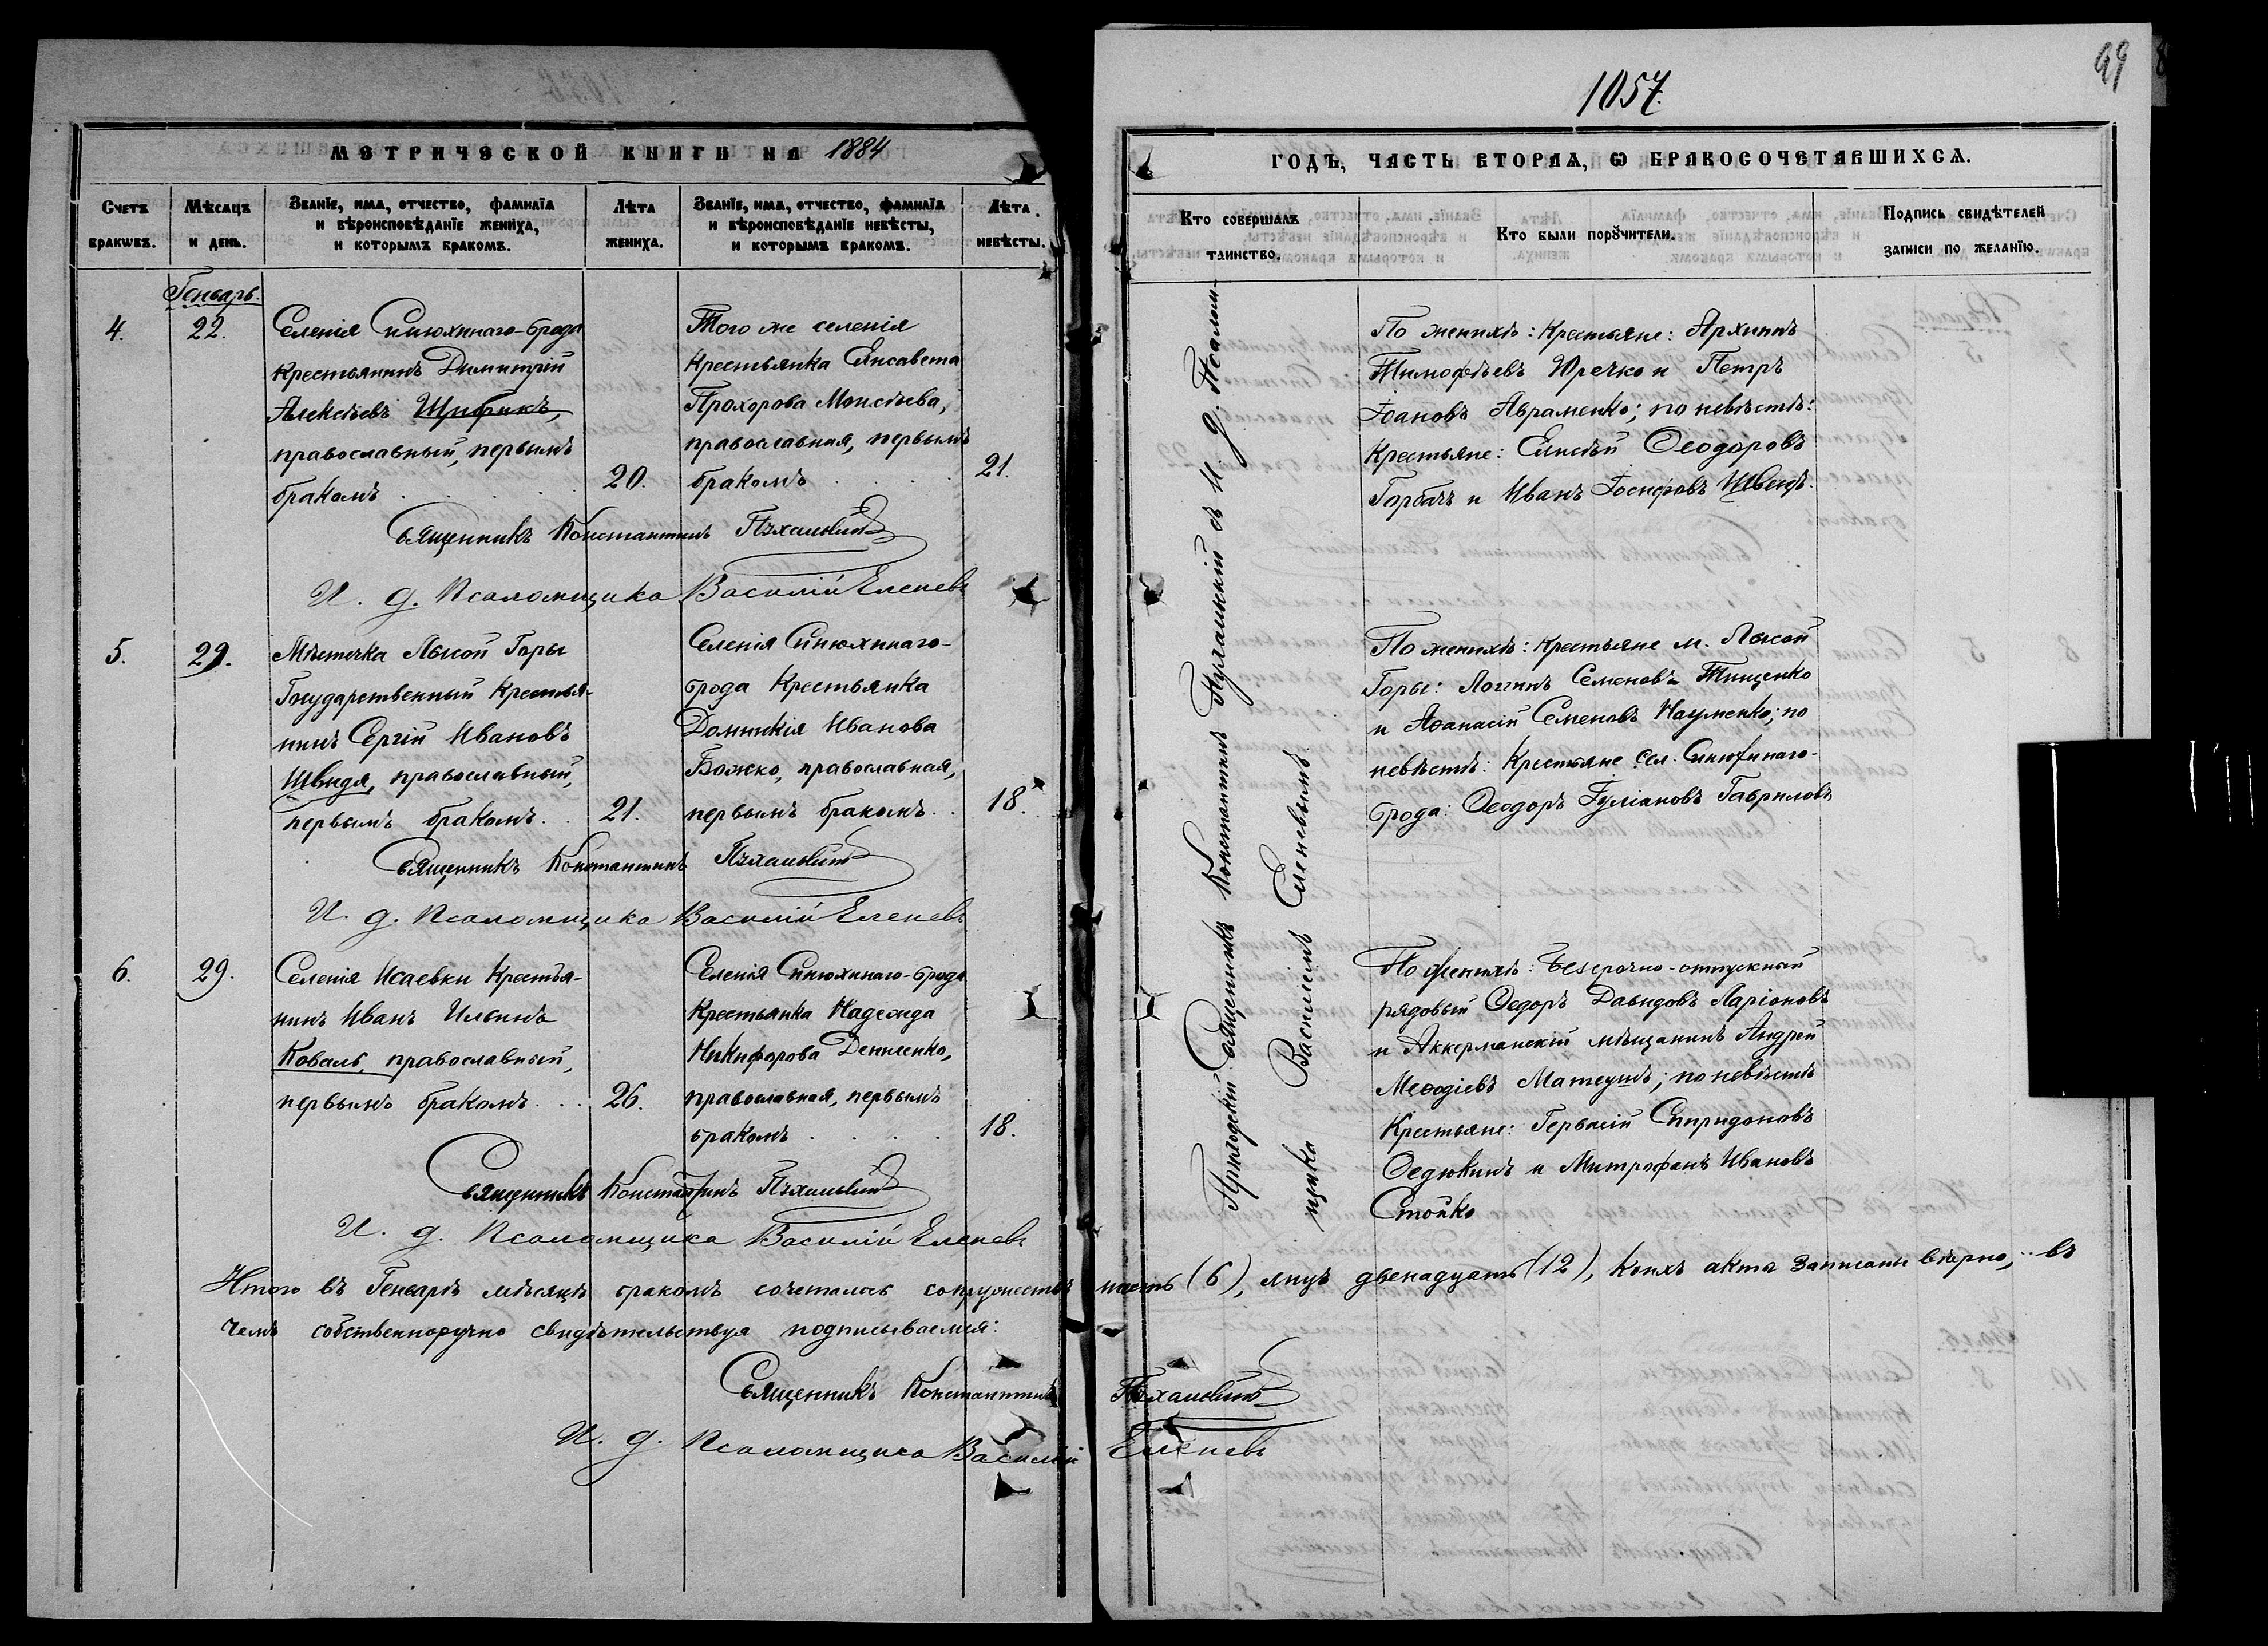 1057.
99
МЕТРИЧЕСКОЙ КНИГИ НА 1884
ГОДЪ, ЧАСТЬ ВТОРАѦ, Ѡ БРАКОСОЧЕТАВШИХСѦ.
Счетъ
браковъ.
Мѣсяцъ
и день.
Званїе, имя, отчество, фамилїа
и вѣроисповѣданїе жениха,
и которымъ бракомъ.
Лѣта
жениха.
Званїе, имя, отчество, фамилїа
и вѣроисповѣданїе невѣсты,
и которымъ бракомъ.
Лѣта
невѣсты.
Кто совершалъ
таинство.
Кто были порꙋчители.
Подпись свидѣтелей
записи по желанїю.
Генварь.
4.
22.
Селенія Синюхинаго-брода
крестьянинъ Димитрій
Алексѣевъ
православный, первымъ
бракомъ
20.
Того же селенія
крестьянка Елисавета
Прохорова Моисѣева,
православная, первымъ
бракомъ
21.
Священникъ Константинъ
И. д. Псаломщика Василій Еленевъ
5.
29.
Мѣстечка Лысой Горы
Государственный крестья-
нинъ Сергій Ивановъ
Швидя, православный,
первымъ бракомъ
21.
Селенія Синюхинаго-
брода крестьянка
Домникія Иванова
Божко, православная,
первымъ бракомъ
18.
Священникъ Константинъ
И. д. Псаломщика Василій Еленевъ
6.
29.
Селенія Исаевки крестья-
нинъ Иванъ Ильинъ
Коваль, православный,
первымъ бракомъ
26.
Селенія Синюхинаго-брода
крестьянка Надежда
Никифорова Денисенко,
православная, первымъ
бракомъ
18.
Священникъ Константинъ
И. д. Псаломщика Василій Еленевъ
Приходскій Священникъ Константинъ съ И. д. Псалом-
щика Василіемъ Еленевымъ.
По женихѣ: крестьяне: Архипъ
Тимофѣевъ Юречко и Петръ
Іоановъ Авраменко; по невѣстѣ:
крестьяне: Елисѣй Ѳеодоровъ
Горбачъ и Иванъ Іосифовъ Швецъ.
По женихѣ: крестьяне м. Лысой
Горы: Логгинъ Семеновъ Тищенко
и Аѳанасій Семеновъ Науменко; по
невѣстѣ: крестьяне сел. Синюхинаго-
брода: Ѳеодоръ Іуліановъ Гавриловъ
По женихѣ: Безсрочно-отпускный
рядовый Ѳедоръ Давидовъ Ларіоновъ
и Аккерманскій мѣщанинъ Андрей
Меѳодіевъ; по невѣстѣ
крестьяне: Гервасій Спиридоновъ
Ѳедюкинъ и Митрофанъ Ивановъ
Стойко
Итого въ Генварѣ мѣсяцѣ бракомъ сочеталось супружествъ шесть (6), лицъ двенадцать (12), коихъ акты записаны вѣрно, въ
чемъ собственноручно свидѣтельствуя подписываемся:
Священникъ Константинъ
И. д. Псаломщика Василій Еленевъ